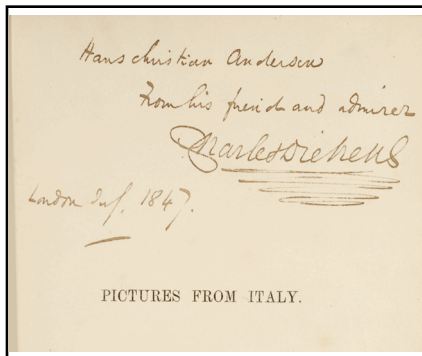 Hans Christian Andersen
From his friend and admirer
Charles Dickens
London July. 1847.
PICTURES FROM ITALY.